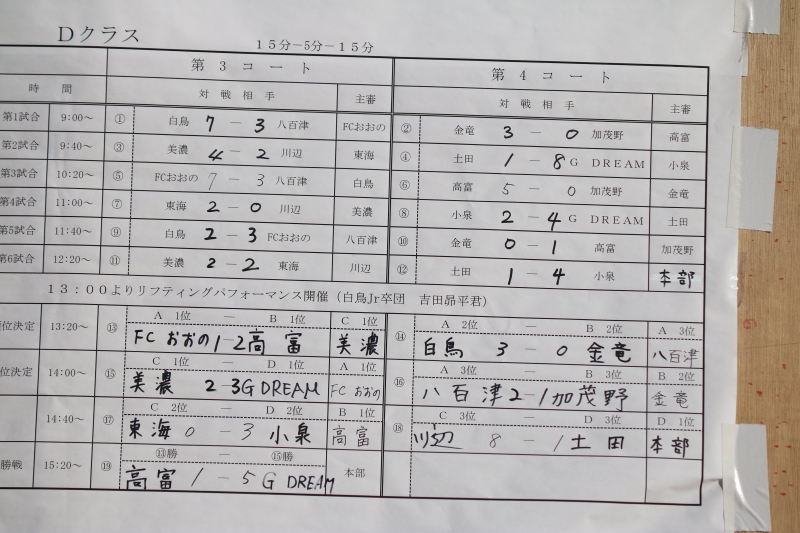 Dクラス
15分－5分－15分
第3コート 第4コート
時間 対戦相手 主審 対戦相手 主審
第1試合 9:00～ ① 白鳥 7 － 3 八百津 FCおおの ② 金竜 3 － 0 加茂野 高富
第2試合 9:40～ ③ 美濃 4 － 2 川辺 東海 ④ 土田 1 － 8 G DREAM 小泉
第3試合 10:20～ ⑤ FCおおの 7 － 3 八百津 白鳥 ⑥ 高富 5 － 0 加茂野 金竜
第4試合 11:00～ ⑦ 東海 2 － 0 川辺 美濃 ⑧ 小泉 2 － 4 G DREAM 土田
第5試合 11:40～ ⑨ 白鳥 2 － 3 FCおおの 八百津 ⑩ 金竜 0 － 1 高富 加茂野
第6試合 12:20～ ⑪ 美濃 2 － 2 東海 川辺 ⑫ 土田 1 － 4 小泉 本部
13:00よりリフティングパフォーマンス開催（白鳥Jr卒団 吉田昂平君）
A 1位 － B 1位 C 1位 A 2位 － B 2位 A 3位
位決定 13:20～ ⑬ FC おおの 1－2 高富 美濃 ⑭ 白鳥 3 － 0 金竜 八百津
C 1位 － D 1位 A 1位 A 3位 － B 3位 B 2位
位決定 14:00～ ⑮ 美濃 2－3 G DREAM FC おおの ⑯ 八百津 2－1 加茂野 金竜
C 2位 － D 2位 B 1位 C 3位 － D 3位 D 1位
14:40～ ⑰ 東海 0 － 3 小泉 高富 ⑱ 川辺 8 － 1 土田 本部
⑬勝 － ⑮勝
勝戦 15:20～ ⑲ 高富 1 － 5 G DREAM 本部